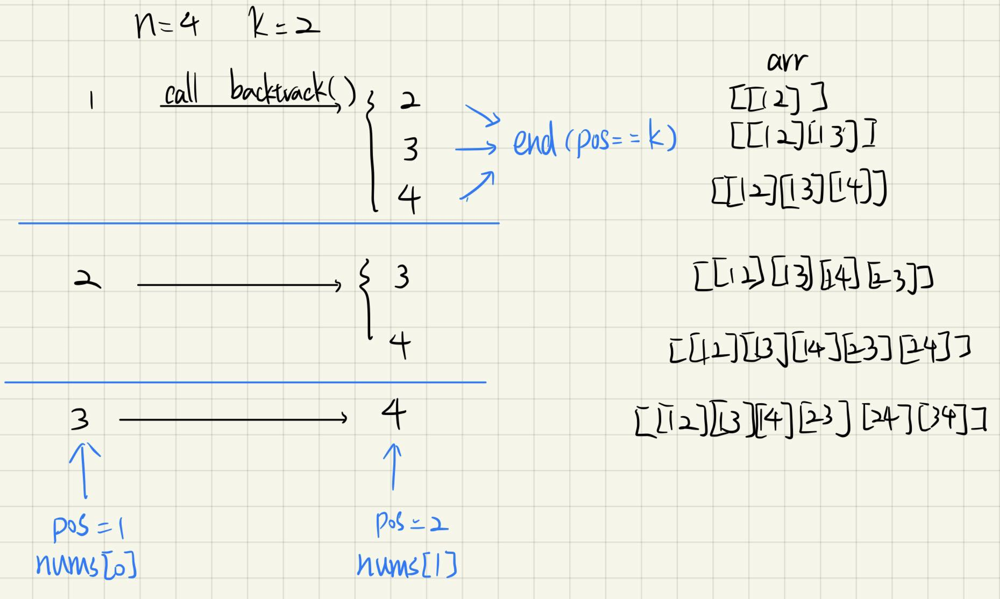 n=4 k=2
arr
1 call backtrack() { 2 [[12] ]
3 end (pos==k) [[12][13]]
4 [[12][13][14]]
2 { 3 [[12][13][14][23]]
4 [[12][13][14][23][24]]
3 4 [[12][13][14][23][24][34]]
pos=1 pos=2
nums[0] nums[1]